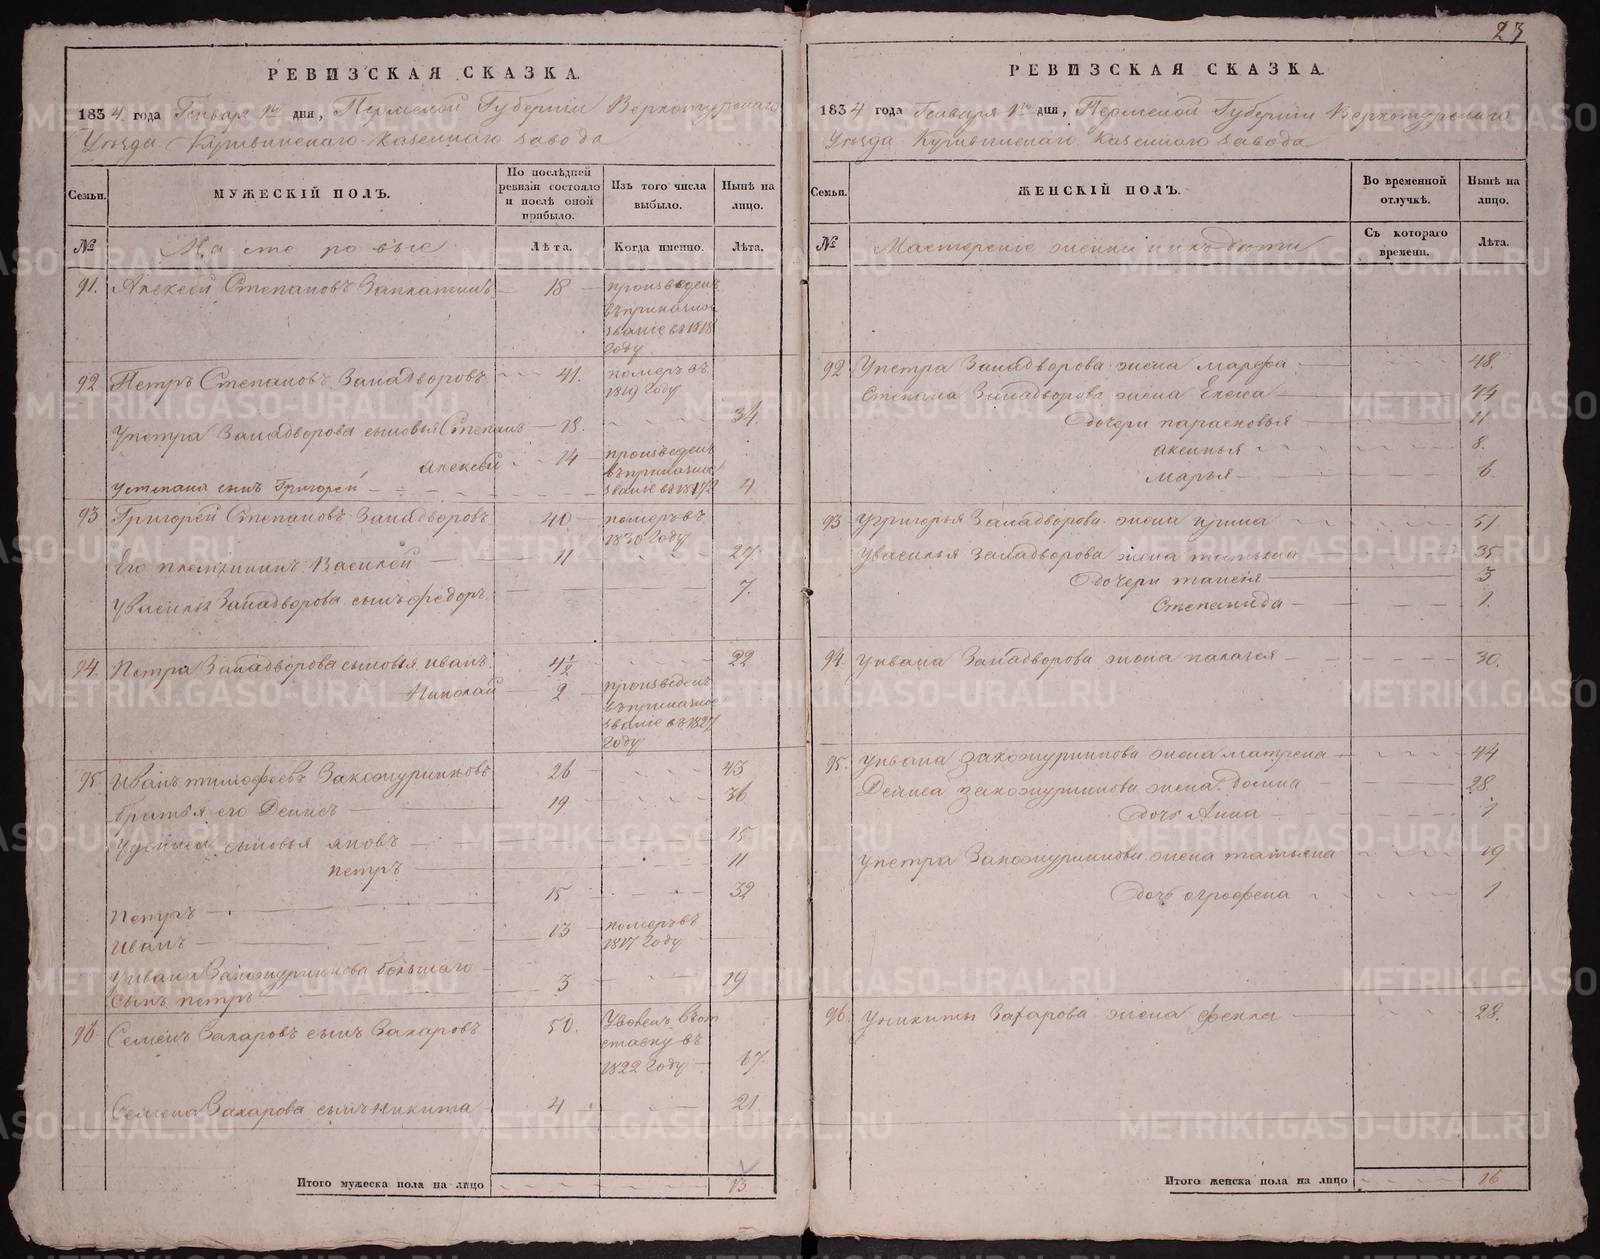 23
РЕВИЗСКАЯ СКАЗКА.
1834 года Генваря 1го дни, Пермской Губернии Верхотурскаго
Уезда Кушвинскаго казеннаго завода
Семьи.
МУЖЕСКІЙ ПОЛЪ.
По послѣдней ревизіи состояло и послѣ оной прибыло.
Изъ того числа выбыло.
Нынѣ на лицо.
№
Мастеровые
Лѣта.
Когда именно.
Лѣта.
91. Алексей Степановъ Заплатинъ 18 произведенъ
въ приказное
званіе въ 1818
году
92 Петръ Степановъ Западворовъ 41. померъ въ
1819 году
У петра Западворова сыновья Степанъ 18. 34.
алексей 14 произведенъ
въ приказное
У степана сынъ Григорей званіе въ 4
93 Григорей Степановъ Западворовъ 40 померъ въ
1830 году
Его племянникъ Василей 11 27.
У Василья Западворова сынъ федоръ 7.
94. Петра Западворова сыновья иванъ 4½ 22
Николай 2 произведенъ
въ приказное
званіе въ 1827
году
95 Иванъ тимофеевъ Закожурниковъ 26 43
братья его Денисъ 19 36
У дениса сыновья яковъ 15
петръ 11
Петръ 15 32
Иванъ 13 померъ въ
1817 году
У ивана Закожурникова большаго
сынъ петръ 3 19
96 Семенъ Захаровъ сынъ Захаровъ 50. Уволенъ въ от
ставку въ
1822 году 67.
Семена Захарова сынъ никита 4 21
Итого мужеска пола на лицо 13
РЕВИЗСКАЯ СКАЗКА.
1834 года Генваря 1го дни, Пермской Губернии Верхотурскаго
Уезда Кушвинскаго казеннаго завода
Семьи.
ЖЕНСКІЙ ПОЛЪ.
Во временной отлучкѣ.
Нынѣ на лицо.
№
Мастерские жонки и ихъ дети
Съ котораго времени.
Лѣта.
92 У петра Западворова жена марфа 48.
Степана Западворова жена Елена 44
дочери парасковья 11
аксинья 8.
марья 6.
93 У григорья Западворова жена ирина 51
У василья западворова жена татьяна 35.
дочери таисія 3
Степанида 1.
94. У ивана Западворова жена палагея 30.
95. У ивана закожурникова жена матрена 44
Дениса закожурникова жена домна 28.
дочь Анна 7
У петра Закожурникова жена татьяна 19
дочь огрофена 1
96 У никиты Захарова жена фекла 28.
Итого женска пола на лицо 16
METRIKI.GASO-URAL.RU